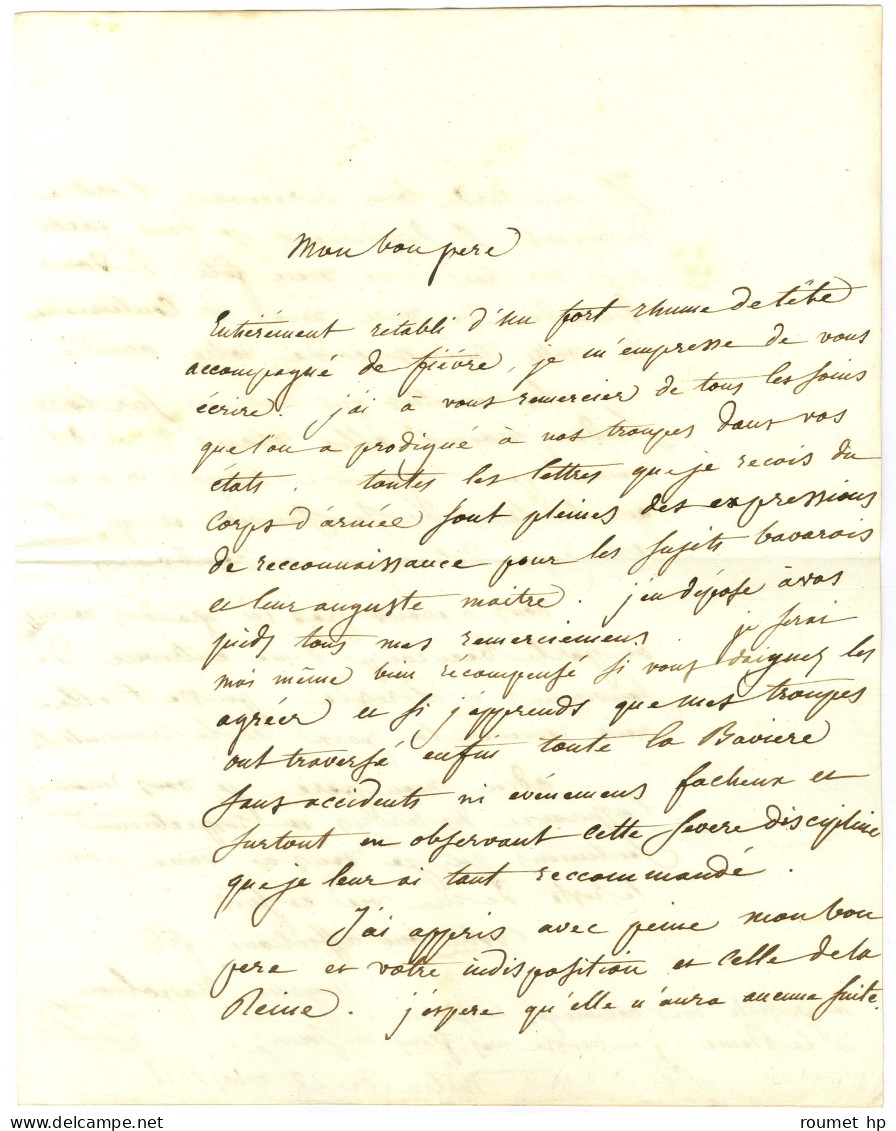 Mon bon pere
Entiérement rétabli d'un fort rhume de tête
accompagné de fiévre, je m'empresse de vous
écrire. j'ai à vous remercier de tous les soins
que l'on a prodigué à nos troupes dans vos
états. toutes les lettres que je recois du
corps d'armée sont pleines des expressions
de recconnaissance pour les sujets bavarois
et leur auguste maitre. j'en dépose à vos
pieds tous mes remerciemens. je serai
moi même bien récompensé si vous daignez les
agréer et si j'apprends que mes troupes
ont traversé enfin toute la Baviere
sans accidents ni evénemens facheux et
surtout en observant cette severe discipline
que je leur ai tant reccommandé.
J'ai appris avec peine mon bon
pere et votre indisposition et celle de la
Reine. j'espere qu'elle n'aura aucune suite.
delcampe.net
roumet hp